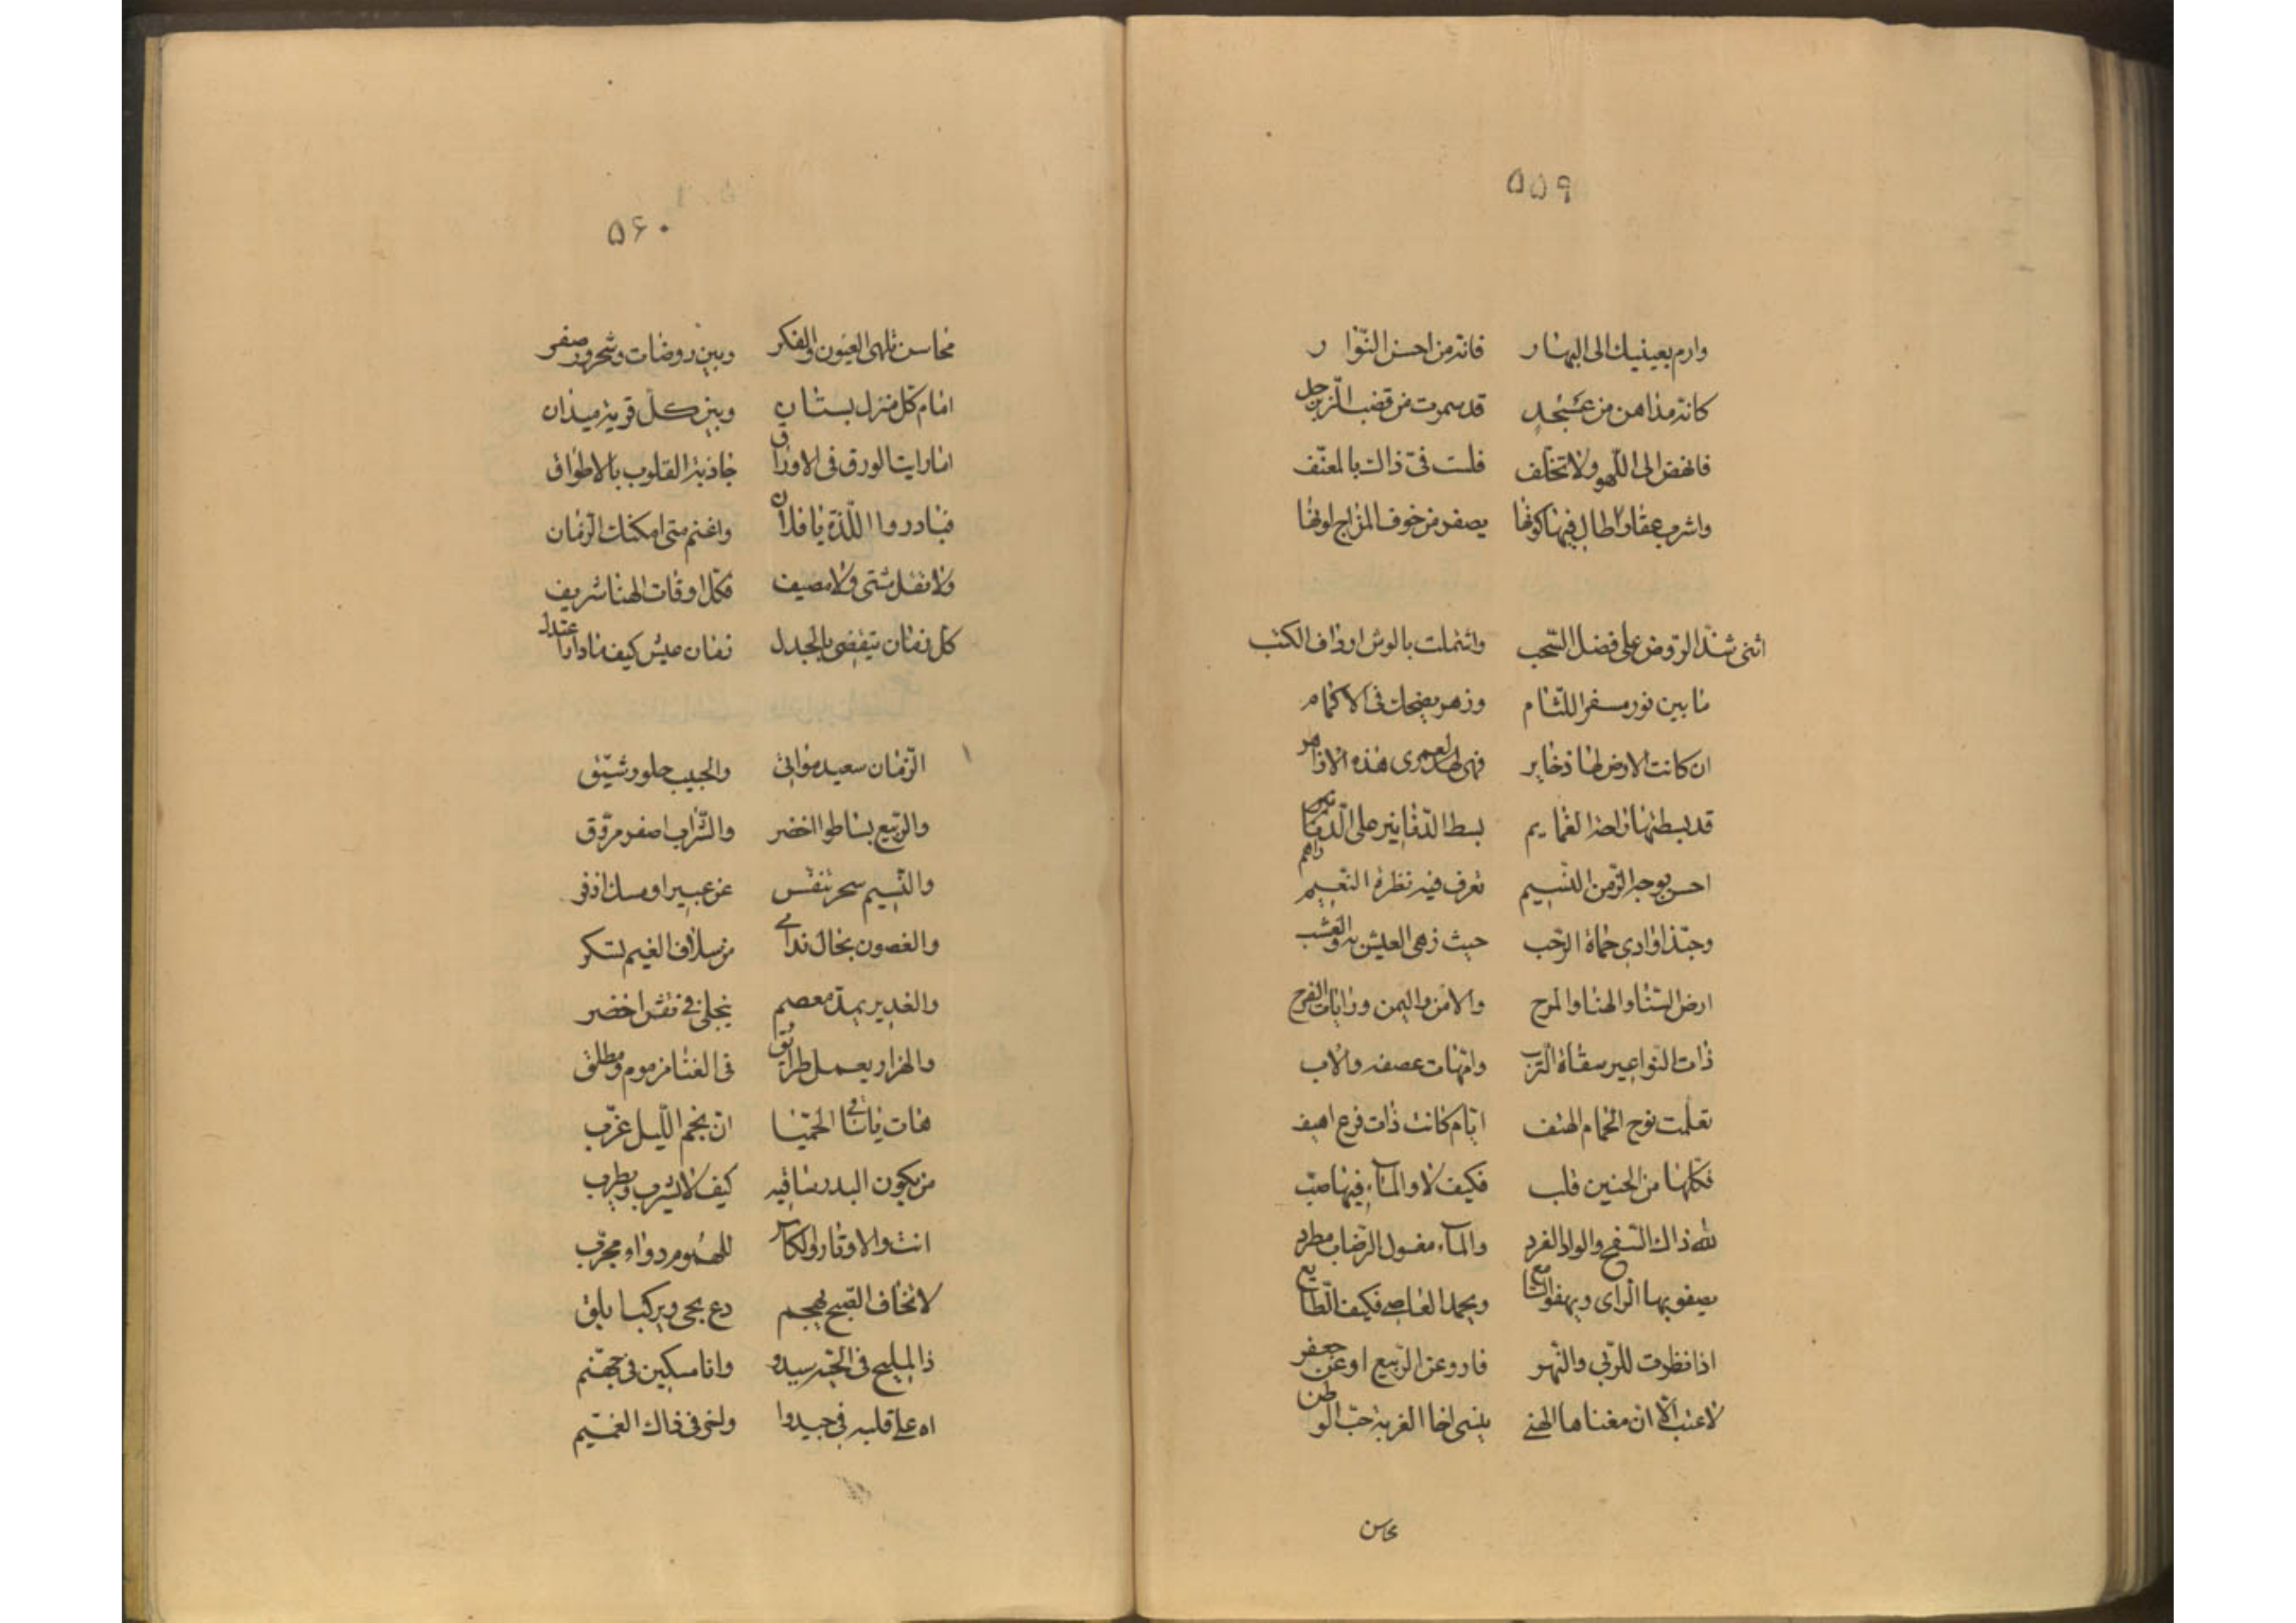 ۵۵۹
وارم بعينيك الى البهار فانه من احسن النّوار
كانه مذاهن من عسجد قد سمرت من قضب الزبرجد
فانهض الى اللّهو ولا تخلف فلست فى ذاك بالمعنّف
واشرب عقارا طال فيها كونها يصفر من خوف المزاج لونها
اثنى شذا الروض على فضل السّحب واشتملت بالوشى ارداف الكثب
ما بين نور مسفر اللثام وزهر يضحك فى الاكمام
ان كانت الارض لها ذخاير فهى لعمرى هذه الازاهر
قد بسطتها راحة الغمايم بسط الدّنانير على الدّراهم
احسن بوجه الزّمن النسيم تعرف فيه نظرة النّعيم
وحبّذا وادى حماة الرّحب حيث زهى العيش به والعشب
ارض السّنا والهنا والمرح والامن واليمن ورايات الفرح
ذات النواعير سقاة التّرب وامّهات عصفه والاب
تعلمت نوح الحمام الهتف ايّام كانت ذات فرع اهيف
فكلّها من الحنين قلب فكيف لا والمآء فيها صبّ
لله ذاك السّفح والوادى الغرد والمآء مغسول الرّضاب مطرد
يصفو بها الراى ويهفو السّامع ويحمد العاصى فكيف الطّايع
اذا نظرت للرّبى والنّهر فارو عن الرّبيع او عن جعفر
لا عيب الّا ان مغناها الهنى ينسى اخا الغربة حبّ الوطن
محاسن
۵۶۰
محاسن تلهى العيون والفكر وبين روضات وشحرور صفر
امام كل منزل بستان وبين كلّ قرية ميدان
اما رايت الورق فى الاوراق جاذبة القلوب بالاطواق
فبادروا اللّذة يا فلان واغنم متى امكنك الزّمان
ولا تقل مشتى ولا مصيف فكل اوقات الهنا شريف
كل زمان يتقضى بالجدل زمان عيش كيف ما دار اعتدل
الزّمان سعيد مواتى والحبيب حلو رشيّق
والرّبيع بساطو اخضر والشّراب اصفر مروّق
والنّسيم سحر تنفّس عن عبير او مسك اذفر
والغصون بحال ندامى من سلاف الغيم تسكر
والغدير يمدّ معصم ينجلى فى نقش اخضر
والهزار يعمل طرايق فى الغنا مزموم ومطلق
هات يا ساقى الحميّا ان نجم اللّيل غرّب
من يكون البدر ساقيه كيف لا يشرب ويطرب
انت والاوتار والكاس للهموم دوا مجرّب
لا تخاف الصّبح يهجم دع يجى ويركب ابلق
ذا المليح فى الجنّه سيدو وانا مسكين فى جهنّم
اه على قلبه فى جيدوا